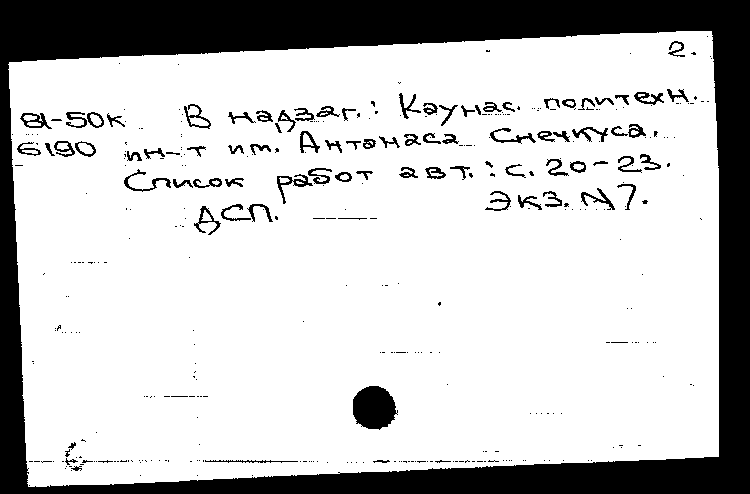 2.
81-50к В надзаг.: Каунас. политехн.
6190 ин-т им. Антанаса Снечкуса.
Список работ авт.: с. 20-23.
ДСП. Экз. N7.
6